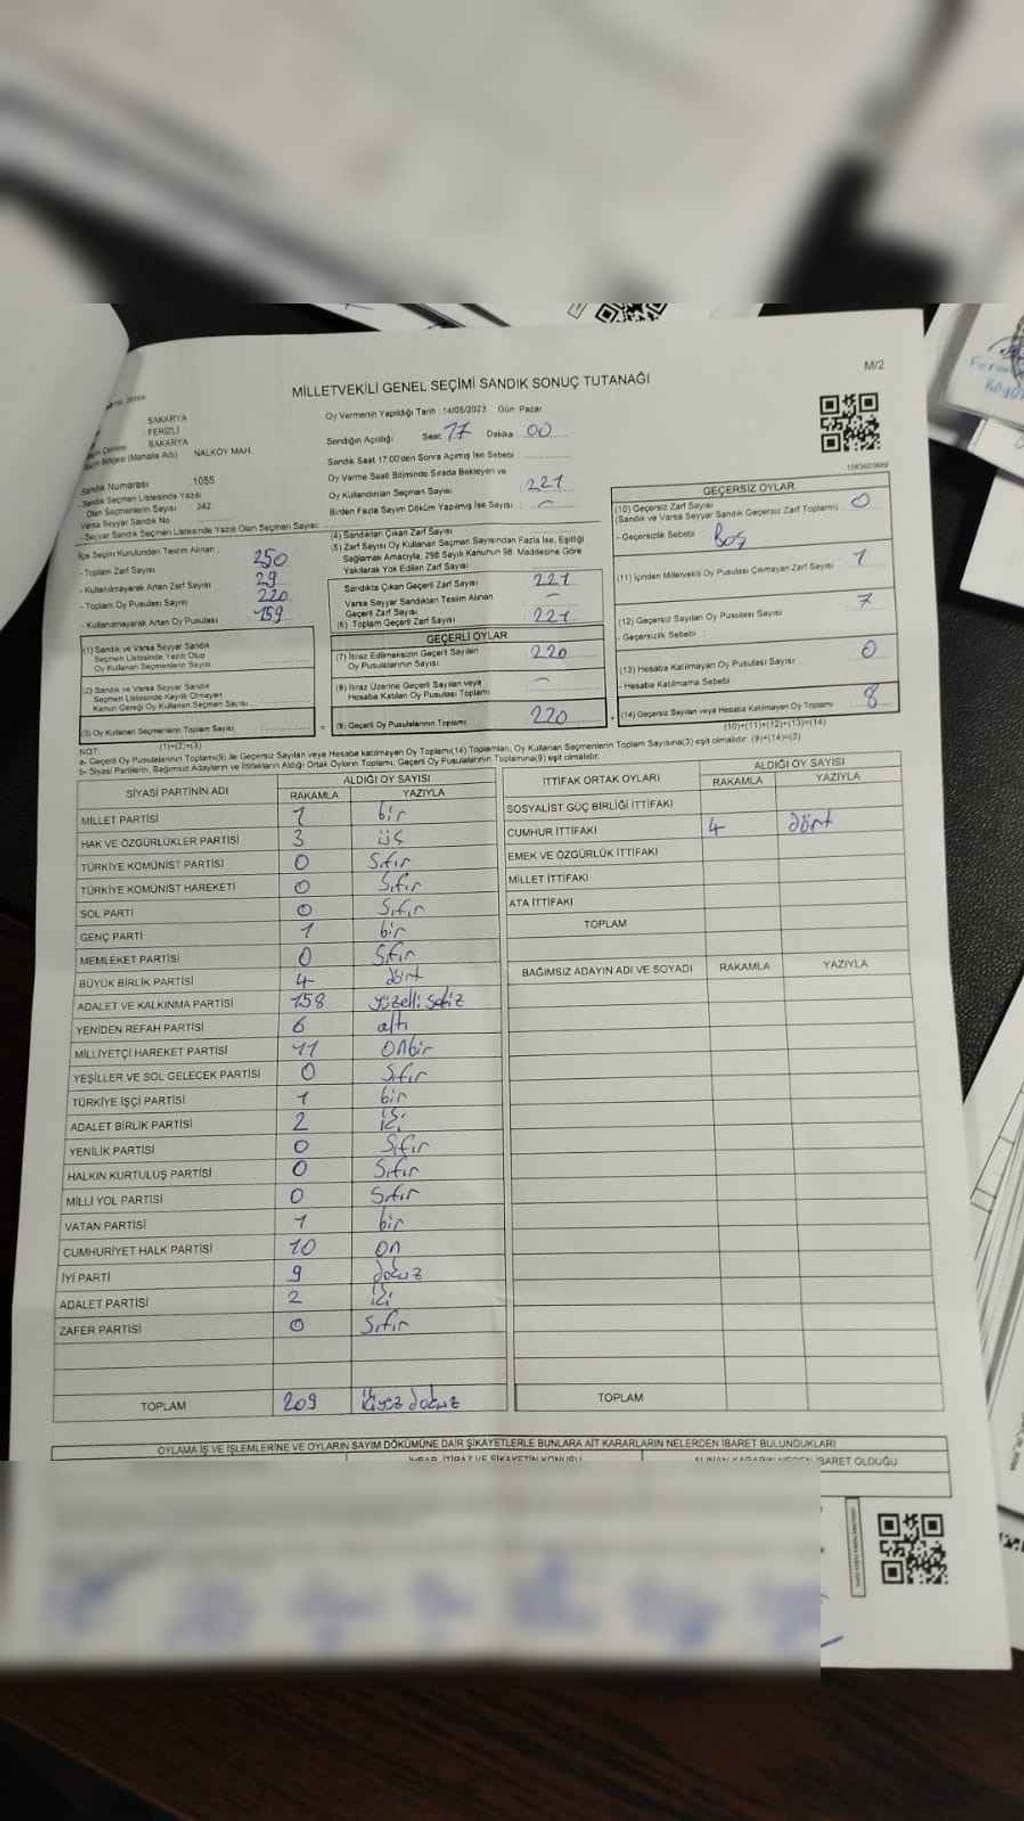 M/2
MİLLETVEKİLİ GENEL SEÇİMİ SANDIK SONUÇ TUTANAĞI
SAKARYA
FERİZLİ
SAKARYA
Seçim Bölgesi (Mahalle Adı) NALKÖY MAH.
Sandık Numarası 1055
Sandık Seçmen Listesinde Yazılı
Olan Seçmenlerin Sayısı 242
Varsa Seyyar Sandık No
Seyyar Sandık Seçmen Listesinde Yazılı Olan Seçmen Sayısı:
İlçe Seçim Kurulundan Teslim Alınan;
- Toplam Zarf Sayısı 250
- Kullanılmayarak Artan Zarf Sayısı 29
- Toplam Oy Pusulası Sayısı 220
- Kullanılmayarak Artan Oy Pusulası 159
(1) Sandık ve Varsa Seyyar Sandık
Seçmen Listesinde Yazılı Olup
Oy Kullanan Seçmenlerin Sayısı
(2) Sandık ve Varsa Seyyar Sandık
Seçmen Listesinde Kayıtlı Olmayan
Kanun Gereği Oy Kullanan Seçmen Sayısı
(3) Oy Kullanan Seçmenlerin Toplam Sayısı
(1)+(2)=(3)
Oy Vermenin Yapıldığı Tarih : 14/05/2023 Gün: Pazar
Sandığın Açıldığı Saat: 17 Dakika: 00
Sandık Saat 17:00'den Sonra Açılmış İse Sebebi :
Oy Verme Saati Bitiminde Sırada Bekleyen ve
Oy Kullandırılan Seçmen Sayısı 221
Birden Fazla Sayım Döküm Yapılmış İse Sayısı : -
(4) Sandıktan Çıkan Zarf Sayısı
(5) Zarf Sayısı Oy Kullanan Seçmen Sayısından Fazla İse, Eşitliği
Sağlamak Amacıyla, 298 Sayılı Kanunun 98. Maddesine Göre
Yakılarak Yok Edilen Zarf Sayısı
Sandıkta Çıkan Geçerli Zarf Sayısı 221
Varsa Seyyar Sandıktan Teslim Alınan
Geçerli Zarf Sayısı -
(6) Toplam Geçerli Zarf Sayısı 221
GEÇERLİ OYLAR
(7) İtiraz Edilmeksizin Geçerli Sayılan
Oy Pusulalarının Sayısı 220
(8) İtiraz Üzerine Geçerli Sayılan veya
Hesaba Katılan Oy Pusulası Toplamı -
= (9) Geçerli Oy Pusulalarının Toplamı 220 +
GEÇERSİZ OYLAR
(10) Geçersiz Zarf Sayısı
(Sandık ve Varsa Seyyar Sandık Geçersiz Zarf Toplamı) 0
- Geçersizlik Sebebi Boş
(11) İçinden Milletvekili Oy Pusulası Çıkmayan Zarf Sayısı 1
(12) Geçersiz Sayılan Oy Pusulası Sayısı 7
- Geçersizlik Sebebi :
(13) Hesaba Katılmayan Oy Pusulası Sayısı 0
- Hesaba Katılmama Sebebi
(14) Geçersiz Sayılan veya Hesaba Katılmayan Oy Toplamı 8
(10)+(11)+(12)+(13)=(14)
NOT:
a- Geçerli Oy Pusulalarının Toplamı(9) ile Geçersiz Sayılan veya Hesaba katılmayan Oy Toplamı(14) Toplamları, Oy Kullanan Seçmenlerin Toplam Sayısına(3) eşit olmalıdır. (9)+(14)=(3)
b- Siyasi Partilerin, Bağımsız Adayların ve İttifakların Aldığı Ortak Oyların Toplamı, Geçerli Oy Pusulalarının Toplamına(9) eşit olmalıdır.
SİYASİ PARTİNİN ADI ALDIĞI OY SAYISI
RAKAMLA YAZIYLA
MİLLET PARTİSİ 1 bir
HAK VE ÖZGÜRLÜKLER PARTİSİ 3 üç
TÜRKİYE KOMÜNİST PARTİSİ 0 Sıfır
TÜRKİYE KOMÜNİST HAREKETİ 0 Sıfır
SOL PARTİ 0 Sıfır
GENÇ PARTİ 1 bir
MEMLEKET PARTİSİ 0 Sıfır
BÜYÜK BİRLİK PARTİSİ 4 dört
ADALET VE KALKINMA PARTİSİ 158 yüzelli sekiz
YENİDEN REFAH PARTİSİ 6 altı
MİLLİYETÇİ HAREKET PARTİSİ 11 Onbir
YEŞİLLER VE SOL GELECEK PARTİSİ 0 Sıfır
TÜRKİYE İŞÇİ PARTİSİ 1 bir
ADALET BİRLİK PARTİSİ 2 iki
YENİLİK PARTİSİ 0 Sıfır
HALKIN KURTULUŞ PARTİSİ 0 Sıfır
MİLLİ YOL PARTİSİ 0 Sıfır
VATAN PARTİSİ 1 bir
CUMHURİYET HALK PARTİSİ 10 on
İYİ PARTİ 9 dokuz
ADALET PARTİSİ 2 iki
ZAFER PARTİSİ 0 Sıfır
TOPLAM 209 İkiyüz dokuz
İTTİFAK ORTAK OYLARI ALDIĞI OY SAYISI
RAKAMLA YAZIYLA
SOSYALİST GÜÇ BİRLİĞİ İTTİFAKI
CUMHUR İTTİFAKI 4 dört
EMEK VE ÖZGÜRLÜK İTTİFAKI
MİLLET İTTİFAKI
ATA İTTİFAKI
TOPLAM
BAĞIMSIZ ADAYIN ADI VE SOYADI RAKAMLA YAZIYLA
TOPLAM
OYLAMA İŞ VE İŞLEMLERİNE VE OYLARIN SAYIM DÖKÜMÜNE DAİR ŞİKAYETLERLE BUNLARA AİT KARARLARIN NELERDEN İBARET BULUNDUKLARI